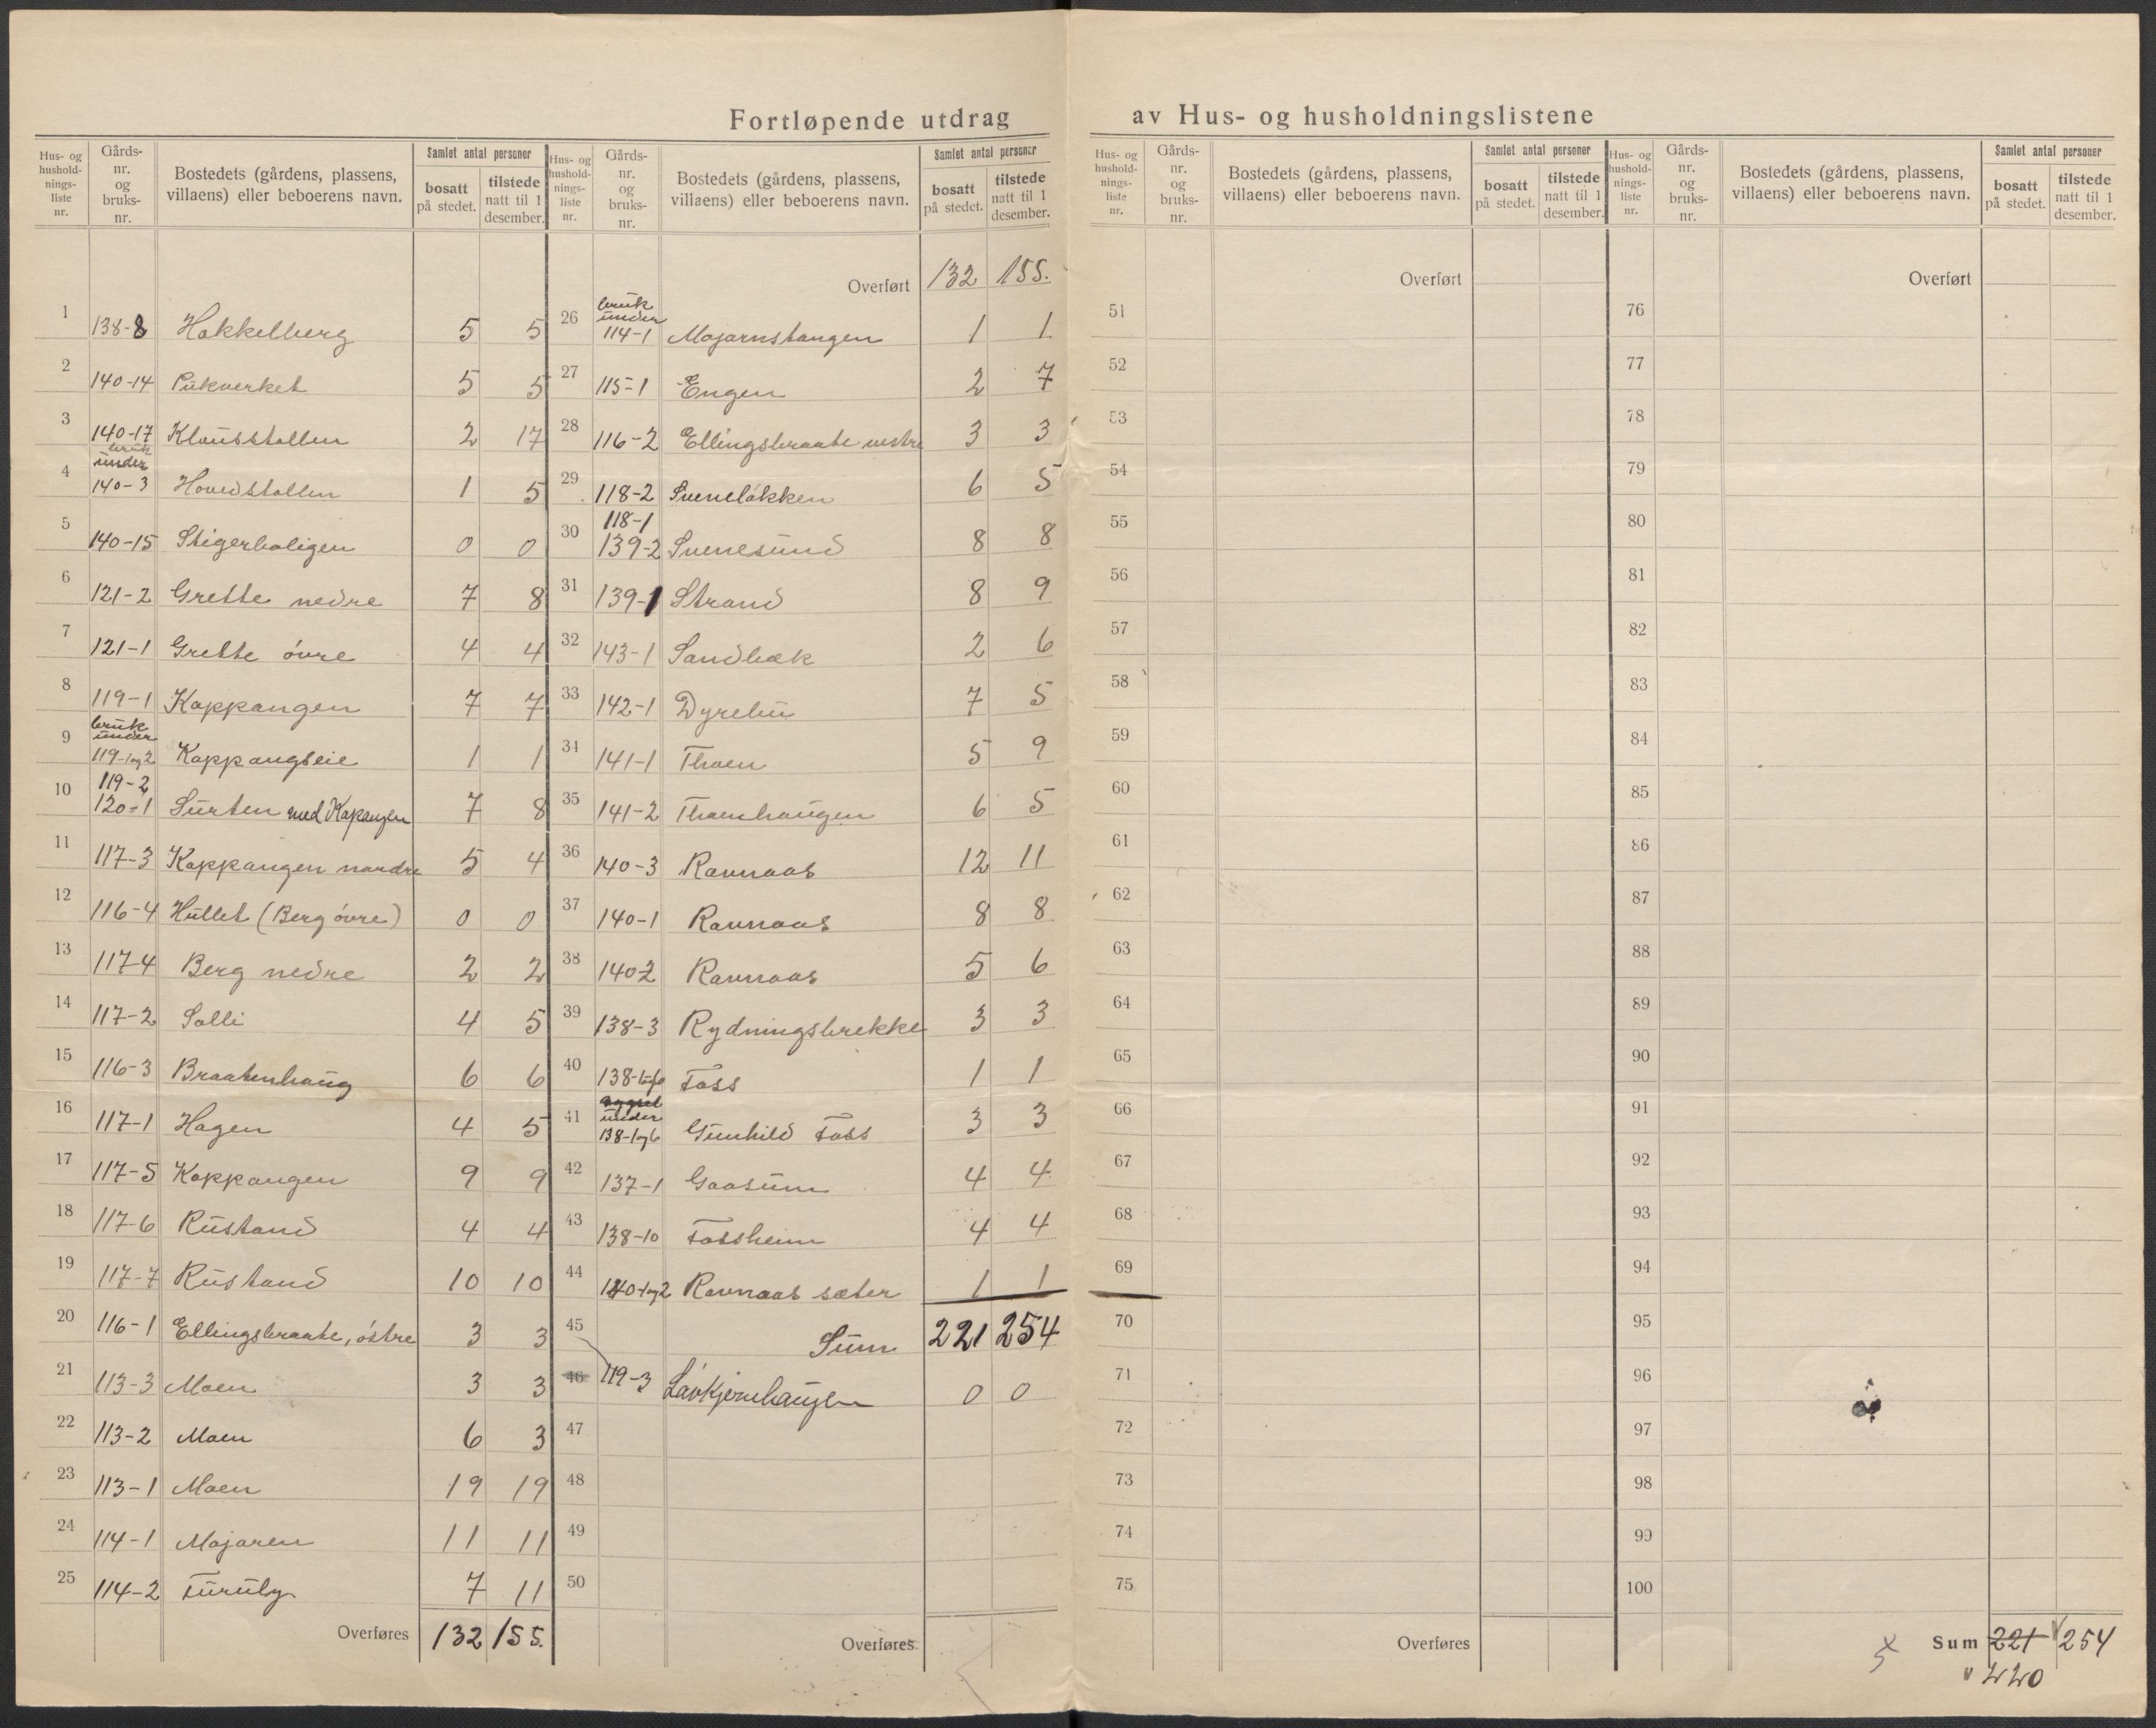 Fortløpende utdrag av Hus- og husholdningslistene
Hus- og hushold- nings- liste nr. | Gårds- nr. og bruks- nr. | Bostedets (gårdens, plassens, villaens) eller beboerens navn. | Samlet antal personer | bosatt på stedet. | tilstede natt til 1 desember.
1 138-8 Hakkelberg 5 5
2 140-14 Pukverket 5 5
3 140-17 Klausstollen 2 17
4 bruk under 140-3 Hovedstollen 1 5
5 140-15 Stigerboligen 0 0
6 121-2 Grette nedre 7 8
7 121-1 Grette óvre 4 4
8 119-1 Kappangen 7 7
9 bruk under 119-1og2 Kappangseie 1 1
10 119-2 120-1 Surten med Kapangen 7 8
11 117-3 Kappangen nordre 5 4
12 116-4 Hullet (Berg óvre) 0 0
13 117-4 Berg nedre 2 2
14 117-2 Solli 4 5
15 116-3 Braatenhaug 6 6
16 117-1 Hagen 4 5
17 117-5 Kappangen 9 9
18 117-6 Rustand 4 4
19 117-7 Rustand 10 10
20 116-1 Ellingsbraate, óstre 3 3
21 113-3 Moen 3 3
22 113-2 Moen 6 3
23 113-1 Moen 19 19
24 114-1 Majaren 11 11
25 114-2 Furuly 7 11
Overføres 132 155.
Hus- og hushold- nings- liste nr. | Gårds- nr. og bruks- nr. | Bostedets (gårdens, plassens, villaens) eller beboerens navn. | Samlet antal personer | bosatt på stedet. | tilstede natt til 1 desember.
Overført 132 155.
26 bruk under 114-1 Majarnstangen 1 1
27 115-1 Engen 2 7
28 116-2 Ellingsbraate vestre 3 3
29 118-2 Sveneløkken 6 5
30 118-1 139-2 Svenesund 8 8
31 139-1 Strand 8 9
32 143-1 Sandbæk 2 6
33 142-1 Dyrebu 7 5
34 141-1 Thoen 5 9
35 141-2 Thoenhaugen 6 5
36 140-3 Ravnaas 12 11
37 140-1 Ravnaas 8 8
38 140-2 Ravnaas 5 6
39 138-3 Rydningsbrekke 3 3
40 138-1og6 Foss 1 1
41 under 138-1og6 Gunhild Foss 3 3
42 137-1 Gaasum 4 4
43 138-10 Fossheim 4 4
44 140-1og2 Ravnaas sæter 1 1
45 Sum 221 254
46 119-3 Lavkjernhaugen 0 0
47
48
49
50
Overføres.
Hus- og hushold- nings- liste nr. | Gårds- nr. og bruks- nr. | Bostedets (gårdens, plassens, villaens) eller beboerens navn. | Samlet antal personer | bosatt på stedet. | tilstede natt til 1 desember.
Overført
51
52
53
54
55
56
57
58
59
60
61
62
63
64
65
66
67
68
69
70
71
72
73
74
75
Overføres
Hus- og hushold- nings- liste nr. | Gårds- nr. og bruks- nr. | Bostedets (gårdens, plassens, villaens) eller beboerens navn. | Samlet antal personer | bosatt på stedet. | tilstede natt til 1 desember.
Overført
76
77
78
79
80
81
82
83
84
85
86
87
88
89
90
91
92
93
94
95
96
97
98
99
100
Sum 221 254
220